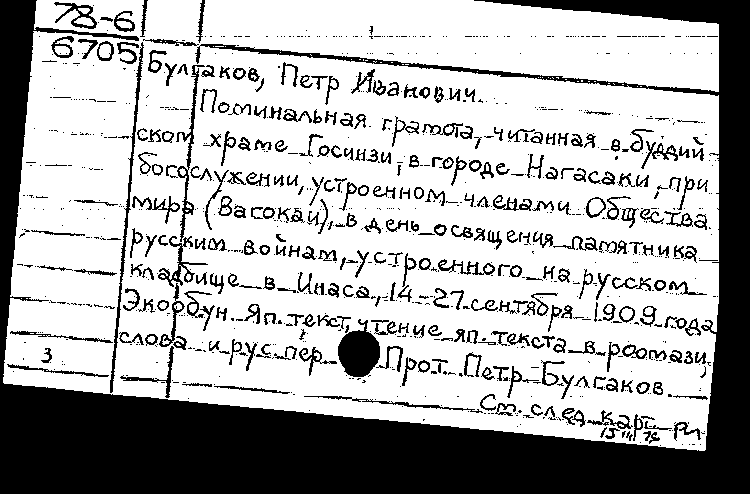 78-6
6705
Булгаков, Петр Иванович.
Поминальная грамота, читанная в буддий-
ском храме Госинзи, в городе Нагасаки, при
богослужении, устроенном членами Общества
мира (Вагокаи), в день освящения памятника
русским войнам, устроенного на русском
кладбище в Инаса, 14-27 сентября 1909 года
Экообун. Яп. текст, чтение яп. текста в роомази,
слова и рус. пер. Прот. Петр Булгаков.
3
См. след. карт.